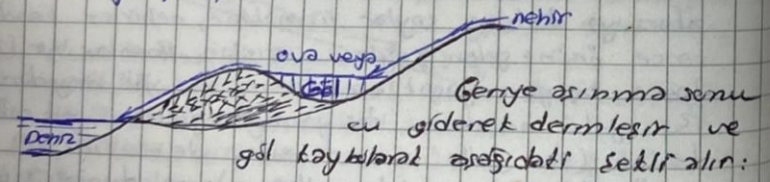 nehir
ova veya
göl
Geriye aşınma sonu
Deniz
cu giderek derinleşir ve
göl kaybolarak aşağıdaki şekli alır: